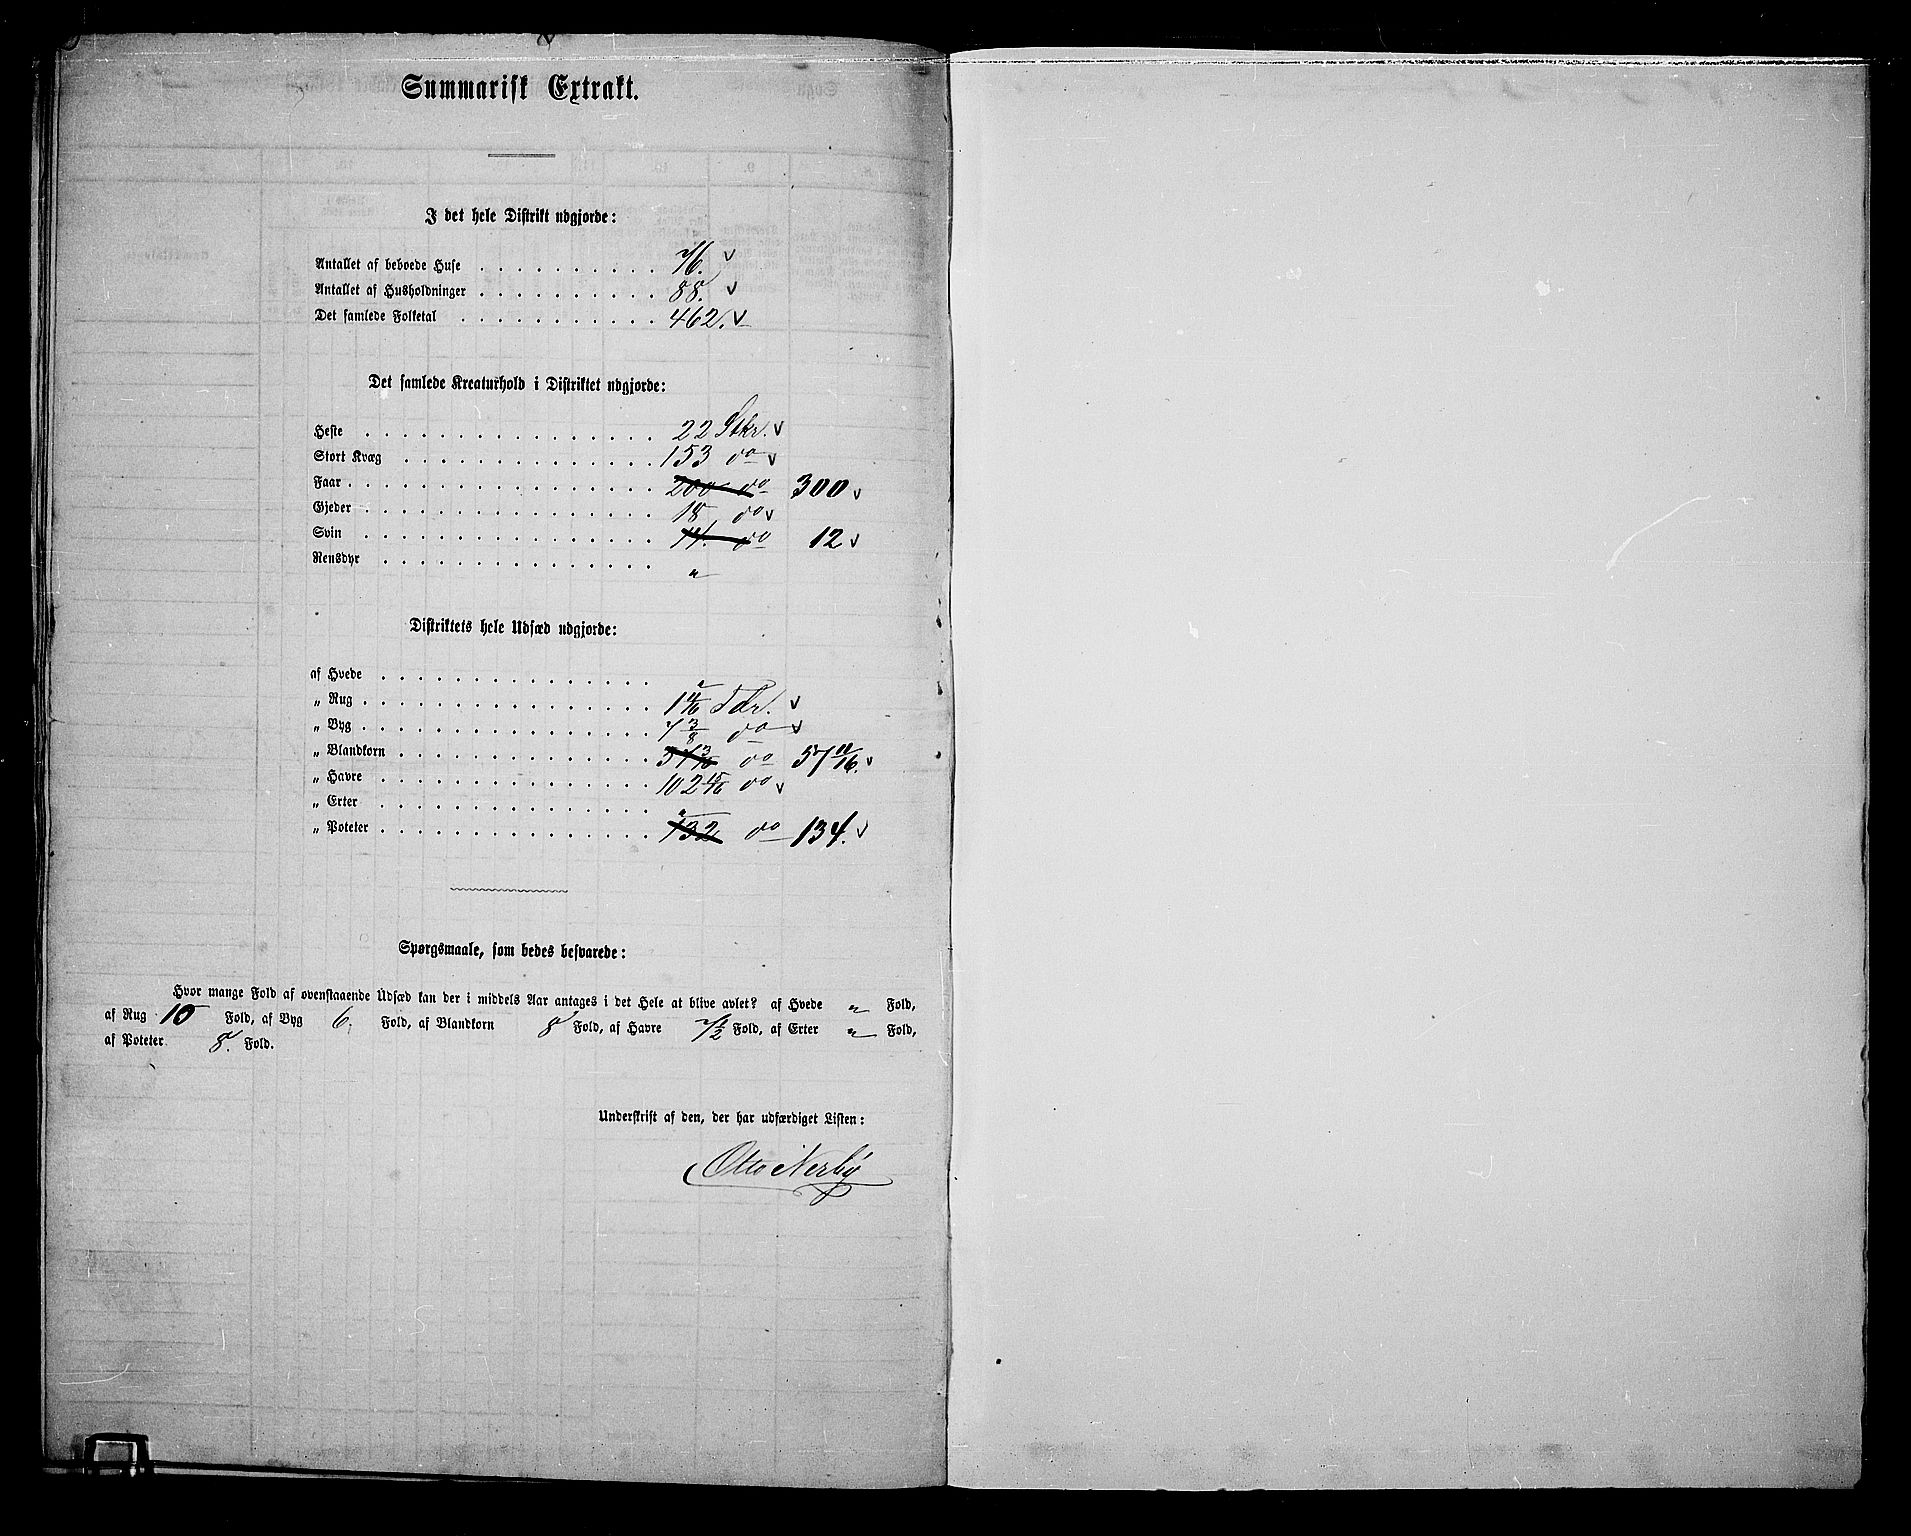 Summarisk Extrakt.
I det hele Distrikt udgjorde:
Antallet af beboede Huse . . . . . . . . . . 76.
Antallet af Husholdninger . . . . . . . . . . 88.
Det samlede Folketal . . . . . . . . . . . 462.
Det samlede Kreaturhold i Distriktet udgjorde:
Heste . . . . . . . . . . . . . . . . 22 Stkr.
Stort Kvæg . . . . . . . . . . . . . . 153 do
Faar . . . . . . . . . . . . . . . . . 200 do 300
Gjeder . . . . . . . . . . . . . . . . 18 do
Svin . . . . . . . . . . . . . . . . 11. do 12
Rensdyr . . . . . . . . . . . . . . . "
Distriktets hele Udsæd udgjorde:
af Hvede . . . . . . . . . . . . . . . "
„ Rug . . . . . . . . . . . . . . . . Tdr.
„ Byg . . . . . . . . . . . . . . . . 7 3/8 do
„ Blandkorn . . . . . . . . . . . . . . do 57 11/16.
„ Havre . . . . . . . . . . . . . . . 102 15/16 do
„ Erter . . . . . . . . . . . . . . . "
„ Poteter . . . . . . . . . . . . . . . 132 do 134.
Spørgsmaale, som bedes besvarede:
Hvor mange Fold af ovenstaaende Udsæd kan der i middels Aar antages i det Hele at blive avlet? af Hvede " Fold,
af Rug 10 Fold, af Byg 6. Fold, af Blandkorn 8 Fold, af Havre Fold, af Erter " Fold,
af Poteter 8. Fold.
Underskrift af den, der har udfærdiget Listen:
Otto Nerby